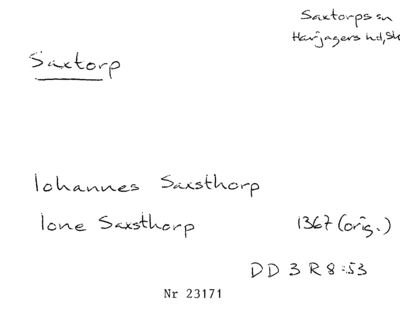 Saxtorps sn
Harjagers hd, Sk
Saxtorp
Iohannes Saxsthorp
Ione Saxsthorp 1367 (orig.)
DD 3 R 8:53
Nr 23171